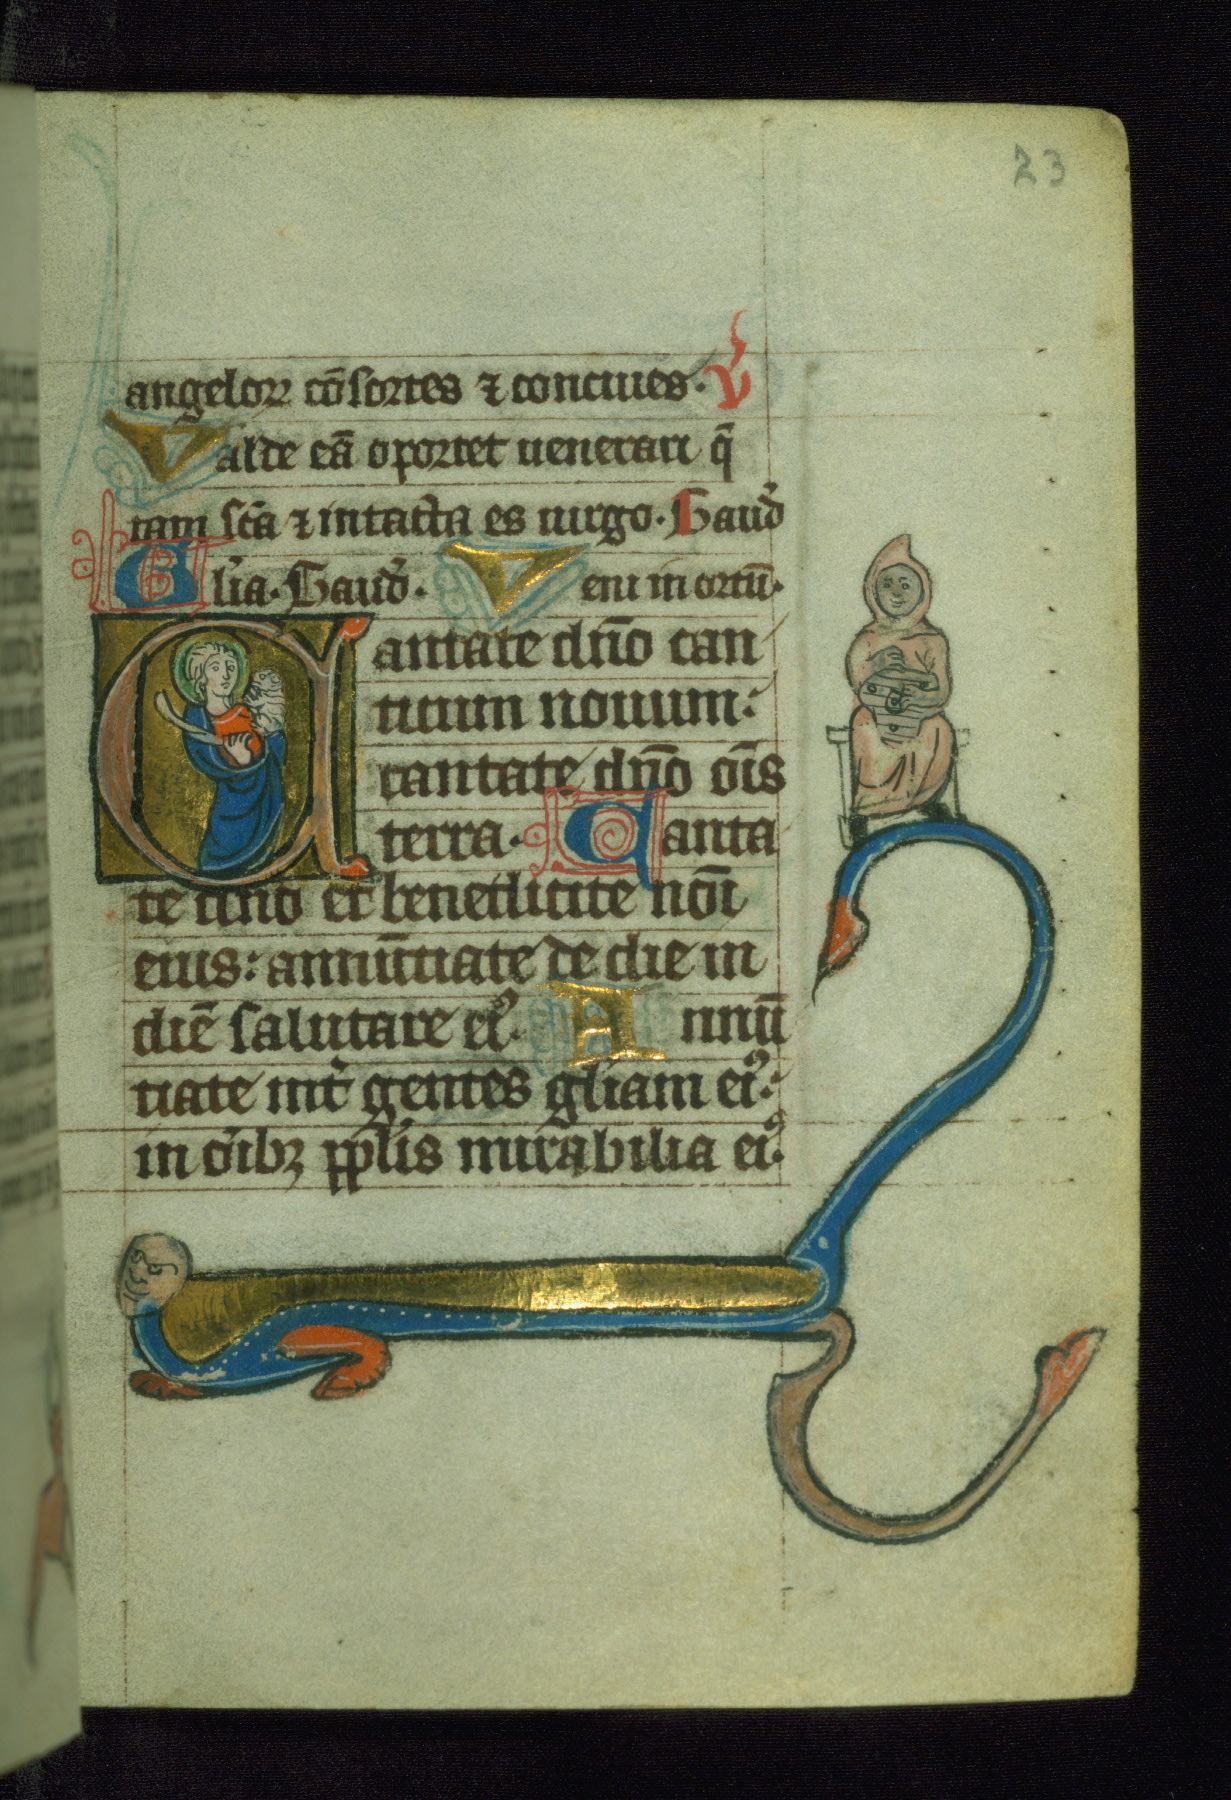 23
angeloꝝ cōsortes ⁊ conciues. V̇
Valde eā oportet uenerari q̄
tam scā ⁊ intacta es uirgo. Gaud̛
Gl̛ia. Gaud̛. Veni in ortū.
Cantate dn̄o can
ticum nouum:
cantate dn̄o oīs
terra. Canta
te dn̄o et benedicite noī
eius: annūtiate de die in
diē salutare eiꝰ. Annū
tiate int̛ gentes gl̛iam eiꝰ:
in oībꝫ ppl̛is mirabilia eiꝰ.